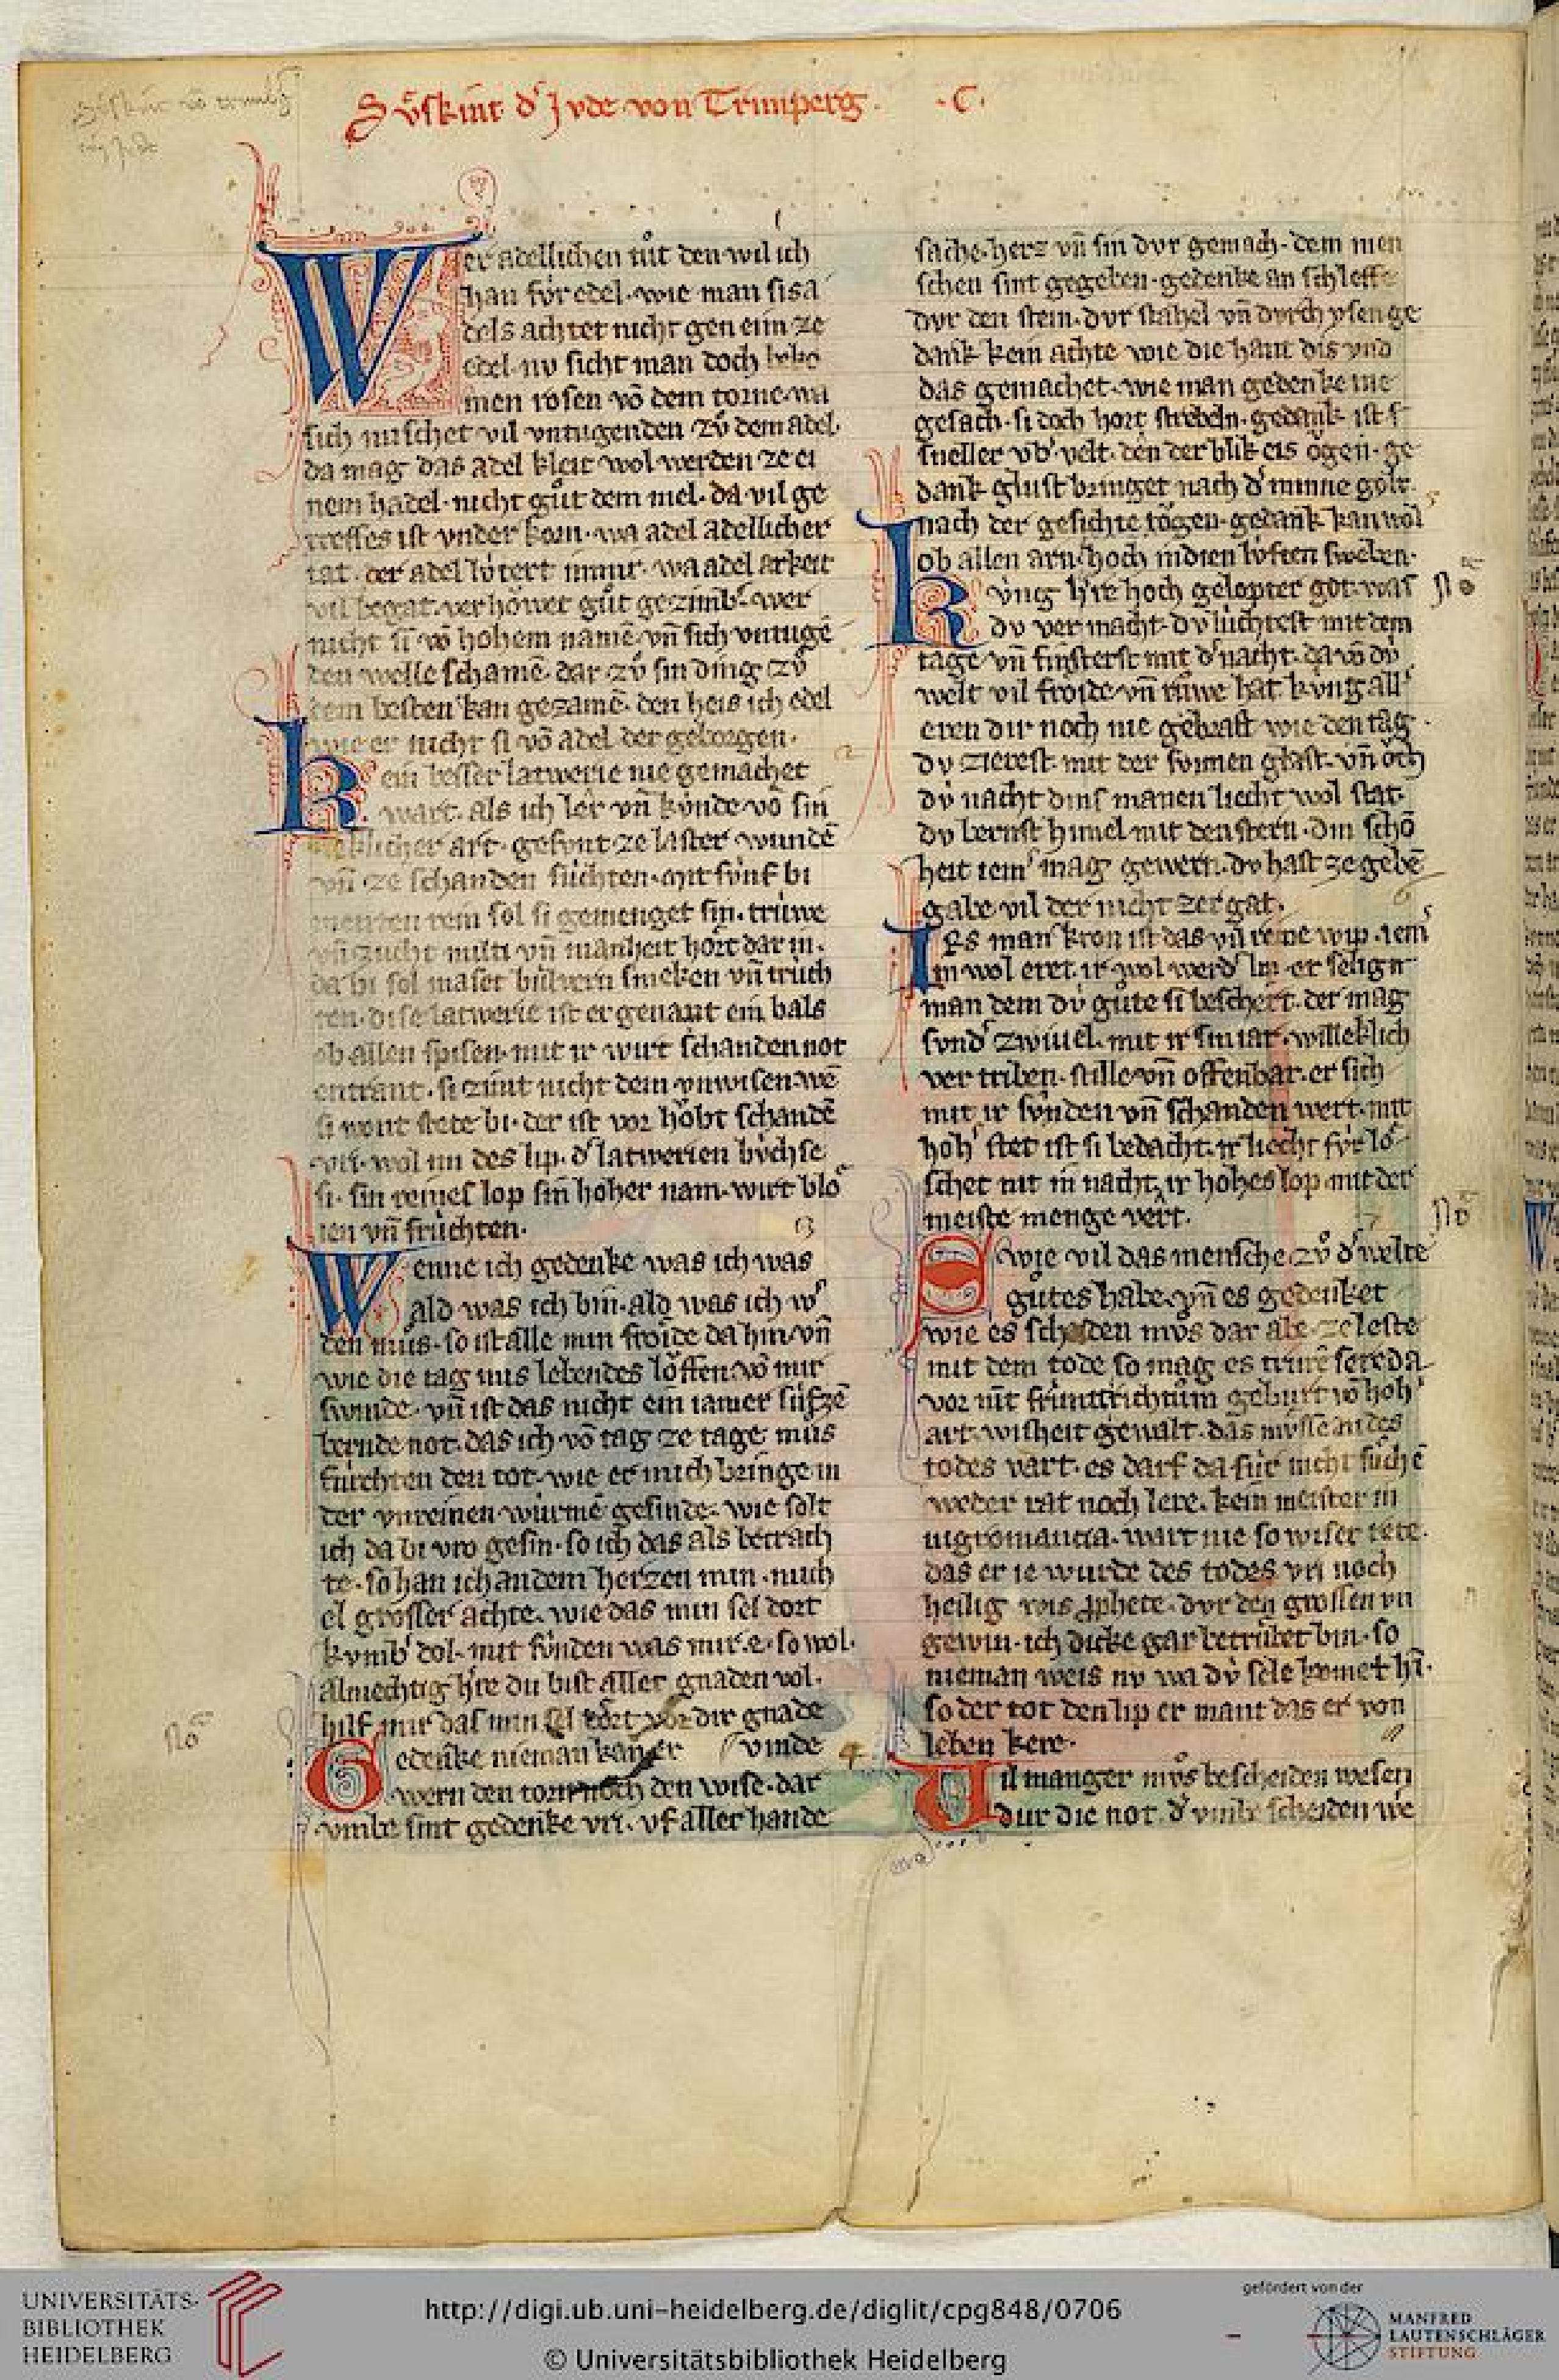 Sv̊skint d' Jvde von Trimperg. .C.
Wer adellichen tůt den wil ich
han fvr edel. wie man sis a
dels achtet nicht gen eim ze
edel. nv sicht man doch beko
men rosen vō dem torne. wa
sich mischet vil vntugenden zv̊ dem adel.
da mag das adel kleit wol werden ze ei
nem hadel. nicht gůt dem mel. da vil ge
treffes ist vnder kom. wa adel adellicher
tat. der adel lútert
vil begat. gůt wer
nicht si vō hohem namē. vn̄ sich vntugē
den welle schamē. dar zv̊ sin ding zv̊
dem besten kan gezamē. den heis ich edel
wie er nicht si vō adel der geborgen.
Kein besser latwerie nie gemachet
wart. als ich ler vn̄ kv́nde vō sin
licher art. gesvnt ze laster wundē
vn̄ ze schanden súchten. mit fúnf bi
menten rein sol si gemenget sin. trúwe
vn̄ zucht milti vn̄ manheit hört dar in.
da bi sol maser smeken vn̄ truch
ten. dise latwerie ist er genant ein bals
ob allen spisen. mit ir wirt schanden not
entrant. si zimt nicht dem vnwisen. wē
si wont stete bi. der ist vor hôbt schandē
vri. wol im des lip. d' latwerien bv́chse
si. sin reines lop sin hoher nam. wirt blů
ien vn̄ frúchten. 3
Wenne ich gedenke was ich was
ald was ich bin. ald was ich w'
den můs. so ist alle min froide da hin. vn̄
wie die tag mis lebendes lôffen vō mir
swinde. vn̄ ist das nicht ein iamer súfzē
bernde not. das ich vō tag ze tage můs
fúrchten den tot. wie er mich bringe in
der vnreinen wúrme gesinde. wie solt
ich da bi vro gesin. so ich das als betrach
te. so han ich an dem herzen min. mich
el grosser achte. wie das min sel dort
kvmb' dol. mit sv́nden was mir e. so wol.
Almechtig h're du bist aller gnaden vol.
hilf mir das min sel dort vor dir gnade
vinde 4
Gedenke nieman kan er
wern den torn noch den wise. dar
vmbe sint gedenke vri. vf aller hande
sache. herz vn̄ sin dvr gemach. dem men
schen sint gegeben. gedenke an schleffe
dvr den stein. dvr stahel vn̄ dvrch ysen ge
dank kein achte wie die hant dis vnd
das gemachet. wie man gedenke nie
gesach. si doch hort strebeln. gedank ist s
sneller vb' velt. den der blik eis ôgen. ge
dank glust bringet nach d' minne gelt.
nach der gesichte tôgen. gedank kan wol
ob allen arn hoch in dien lv́ften sweben.
Kv́nig h're hoch gelopter got. was No
dv ver macht. dv lúchtest mit dem
tage vn̄ finsterst mit d' nacht. da vō dv́
welt vil froide vn̄ růwe hat. kv́nig all'
eren dir noch nie gebrast wie den tag
dv zierest mit der svnnen glast. vn̄ ôch
dv́ nacht dins manen liecht wol stat.
dv bernst himel mit den stern. din schō
heit iem' mag gewern. dv hast ze gebē
gabe vil der nicht zergat. 6
Irs man kron ist das vil reine wip. iem'
in wol eret. ir wol werd' lip. er selig
man dem dv́ gůte si beschert. der mag
svnd' zwivel. mit ir sin iar. willeklich
ver triben. stille vn̄ offenbar. er sich
mit ir sv́nden vn̄ schanden wert. mit
hoh' stet ist si bedacht. ir liecht fv́r lö
schet nit in nacht. ir hohes lop mit der
meiste menge vert. 7 No
Swie vil das mensche zv̊ d' welte
gůtes habe. vn̄ es gedenket
wie es scheiden můs dar abe. ze leste
mit dem tode so mag es trurē sere. da
vor nút frúnt richtům geburt vō hoh'
art. wisheit gewalt. das mv́sse an des
todes vart. es darf da fúr nicht sůchē
weder rat noch lere. kein meister in
nigromancia. wart nie so wiser rete.
das er ie wurde des todes vri noch
heilig wis prophete. dvr den grossen vn
gewin. ich dicke gar betrúbet bin. so
nieman weis nv wa dv́ sele komet hī.
so der tot den lip er mant das er von
leben kere. 8
Vil manger můs bescheiden wesen
dur die not. d' vmbe scheiden we
UNIVERSITÄTS-
BIBLIOTHEK
HEIDELBERG
http://digi.ub.uni-heidelberg.de/diglit/cpg848/0706
© Universitätsbibliothek Heidelberg
gefördert von der
MANFRED
LAUTENSCHLÄGER
STIFTUNG